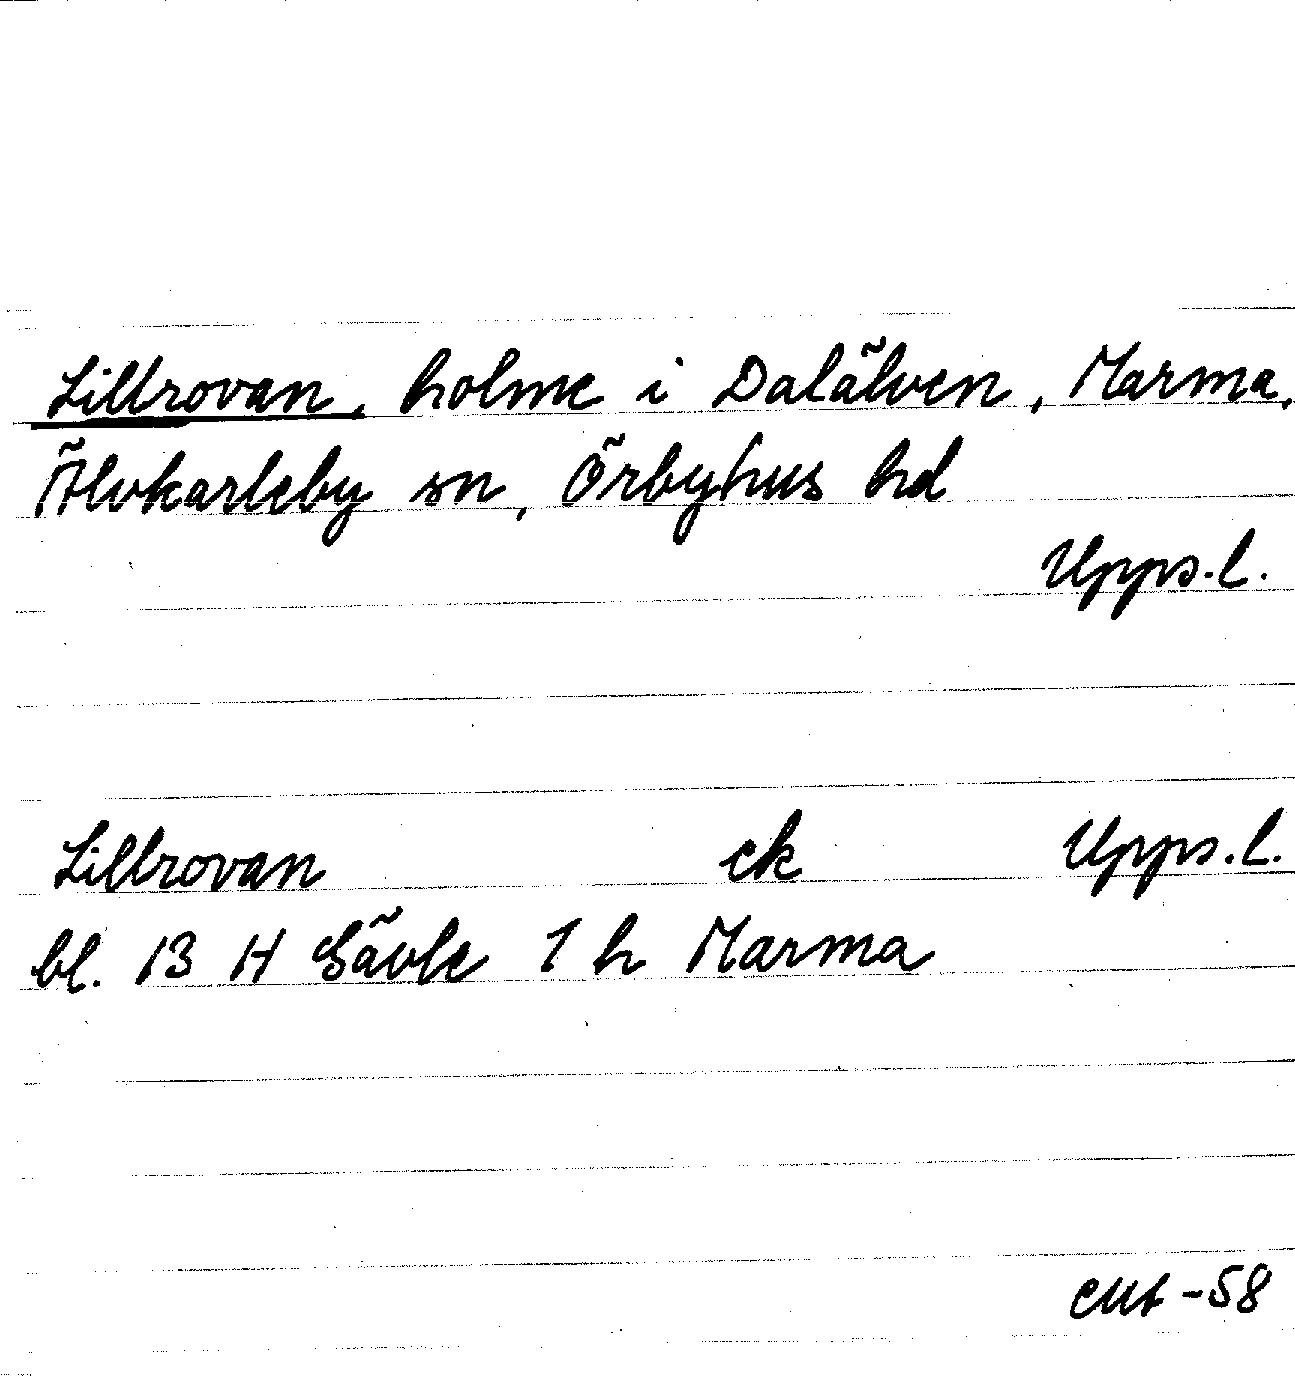 Lillrovan, holme i Dalälven, Marma,
Älvkarleby sn, Örbyhus hd
Upps.l.
Lillrovan ek Upps.l.
bl. 13 H Gävle 1 h Marma
-58